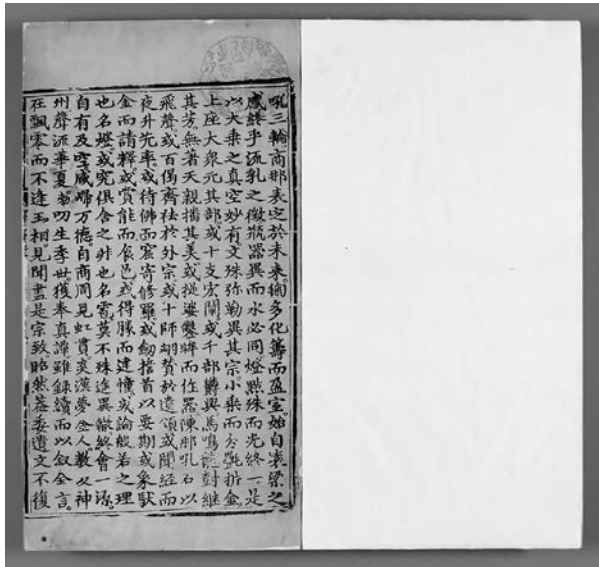 吼三輪商那表定於未来毱多化籌而盈室始自裛梁之
感終乎流乳之徵瓶器異而水必同燈點殊而光終一是
以大乘之真空妙有文殊弥勒異其宗小乘而分氎析金
上座大衆元其部或十支宏闡或千部欝興馬鳴龍封継
其芳無著天親播其美或提婆鑿眸而作器陳那吼石以
飛聲或百偈齊祛於外宗或十師翊賛於遺頌或聞経而
夜升兜率或待佛而窟寄修羅或劒擔首以要期或象馱
金而請釋或賞能而食邑或得勝而建幢或論般若之理
也名燈或究俱舍之非也名雹莫不殊途異轍終會一源
自有及聖咸歸万德自商周見虹貫炎漢夢金人教神
州聲流華夏叨生季世獲奉真譚雖鍊續而以叙全言
在飄零而不逢玉相見聞盡是宗致昭然盖委遺文不復